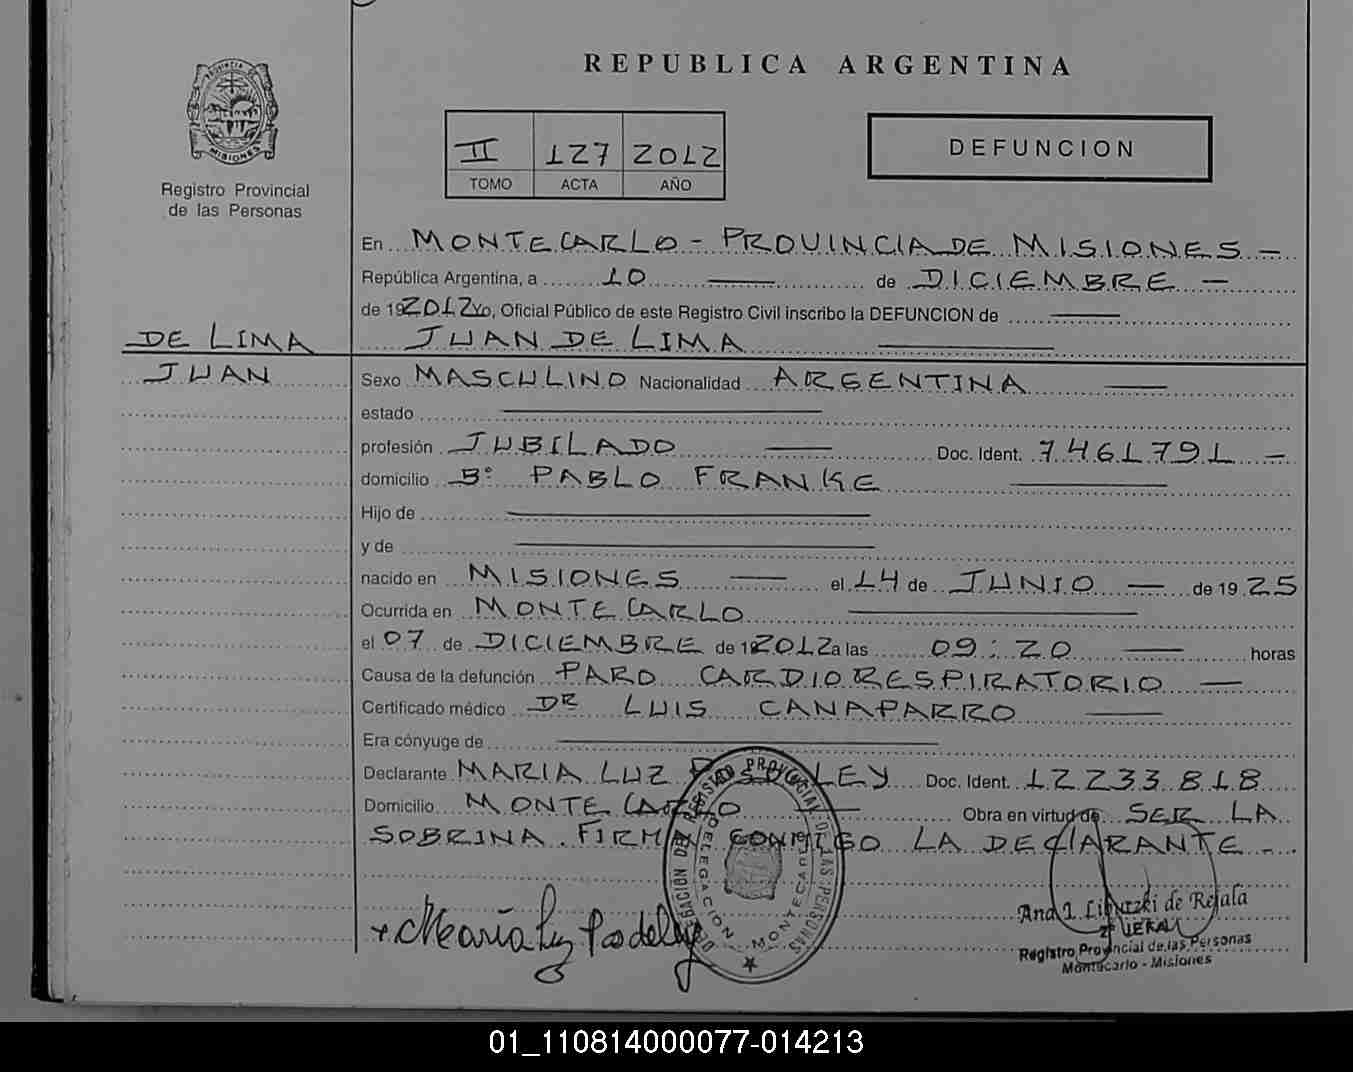 REPUBLICA ARGENTINA
PROVINCIA DE
MISIONES
Registro Provincial
de las Personas
II 127 2012
TOMO ACTA AÑO
DEFUNCION
En MONTECARLO - PROVINCIA DE MISIONES -
República Argentina, a 10 de DICIEMBRE -
de 192012 Yo, Oficial Público de este Registro Civil inscribo la DEFUNCION de
DE LIMA JUAN DE LIMA
JUAN Sexo MASCULINO Nacionalidad ARGENTINA
estado
profesión JUBILADO Doc. Ident. 7461791 -
domicilio Bº PABLO FRANKE
Hijo de
y de
nacido en MISIONES el 14 de JUNIO de 1925
Ocurrida en MONTECARLO
el 07 de DICIEMBRE de 192012 a las 09:20 horas
Causa de la defunción PARO CARDIORESPIRATORIO
Certificado médico DR LUIS CANAPARRO
Era cónyuge de
Declarante MARIA LUZ LEY Doc. Ident. 12233.818
Domicilio MONTECARLO Obra en virtud de SER LA
SOBRINA. FIRMA CONMIGO LA DECLARANTE -.
DELEGACIÓN MONTECARLO
María Luz
Ana I. de Rejala
Registro Provincial de las Personas
Montecarlo - Misiones
01_110814000077-014213